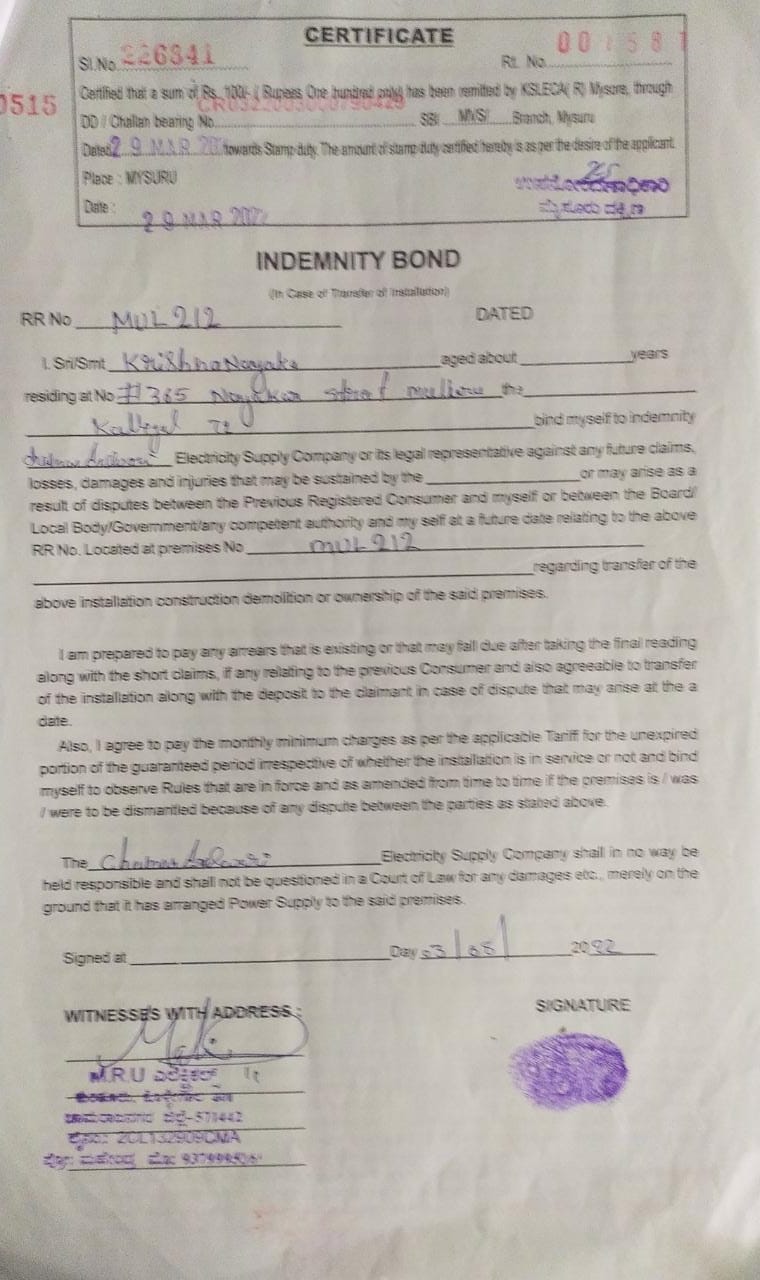 CERTIFICATE
Sl.No. 226341
Rt. No.
0515
Certified that a sum of Rs. 100/- ( Rupees One hundred only) has been remitted by KSLECA( R) Mysore, through
DD / Challan bearing No. SBI MYS/ Branch, Mysuru
Dated 29 MAR towards Stamp duty. The amount of stamp duty certified hereby is as per the desire of the applicant.
Place : MYSURU
Date :
29 MAR
INDEMNITY BOND
(In Case of Transfer of Installation)
RR No MUL 212 DATED
I. Sri/Smt Krishna Nayaka aged about years
residing at No #365 street the
Kollegal bind myself to indemnity
Electricity Supply Company or its legal representative against any future claims,
losses, damages and injuries that may be sustained by the or may arise as a
result of disputes between the Previous Registered Consumer and myself or between the Board/
Local Body/Government/any competent authority and my self at a future date relating to the above
RR No. Located at premises No MUL 212
regarding transfer of the
above installation construction demolition or ownership of the said premises.
I am prepared to pay any arrears that is existing or that may fall due after taking the final reading
along with the short claims, if any relating to the previous Consumer and also agreeable to transfer
of the installation along with the deposit to the claimant in case of dispute that may arise at the a
date.
Also, I agree to pay the monthly minimum charges as per the applicable Tariff for the unexpired
portion of the guaranteed period irrespective of whether the installation is in service or not and bind
myself to observe Rules that are in force and as amended from time to time if the premises is / was
/ were to be dismantled because of any dispute between the parties as stated above.
The Electricity Supply Company shall in no way be
held responsible and shall not be questioned in a Court of Law for any damages etc., merely on the
ground that it has arranged Power Supply to the said premises.
Signed at Day 03/05/ 2022
WITNESSES WITH ADDRESS :
SIGNATURE
M.R.U
-571442